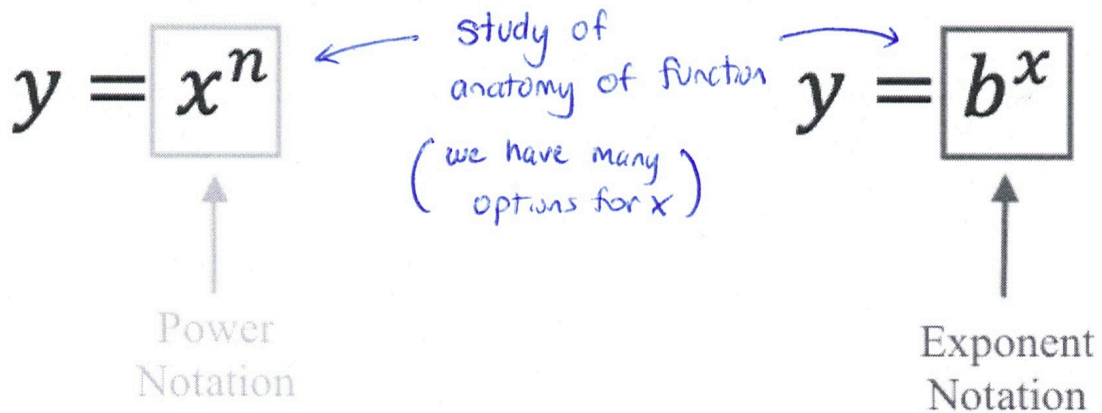 y = xⁿ
study of
anatomy of function
(we have many
options for x)
y = bˣ
Power
Notation
Exponent
Notation